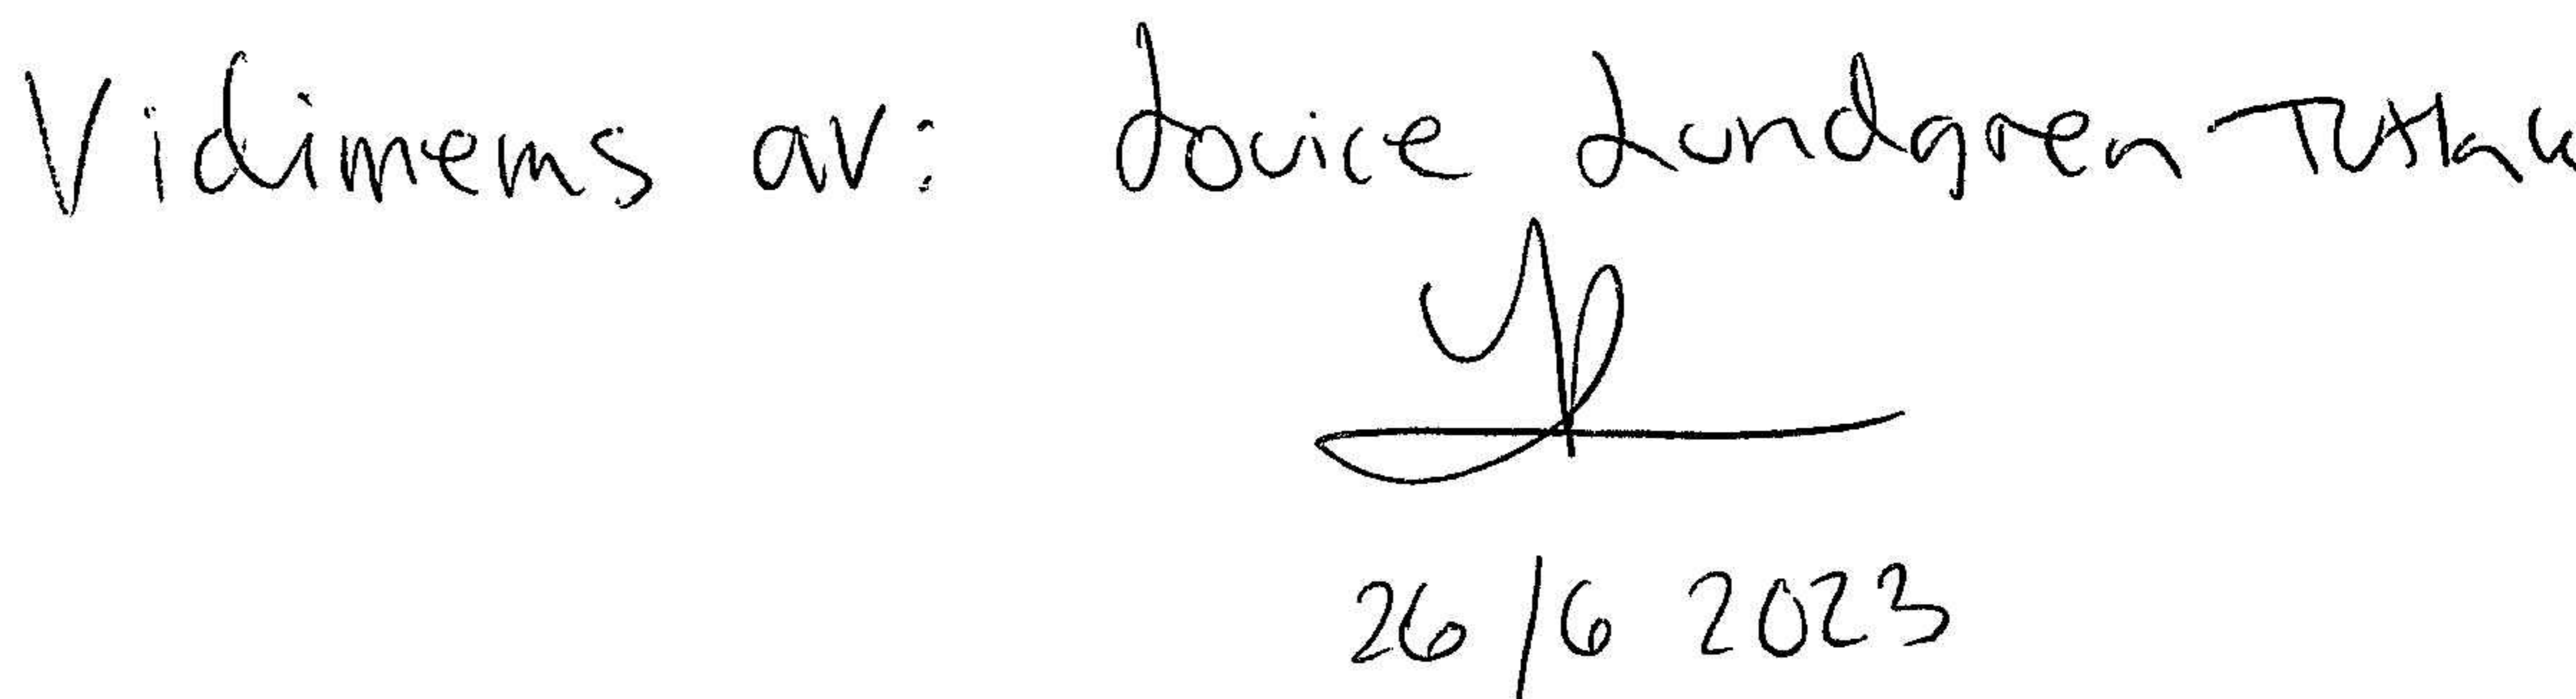 Vidimeras av: Lovice Lundgren
26/6 2023